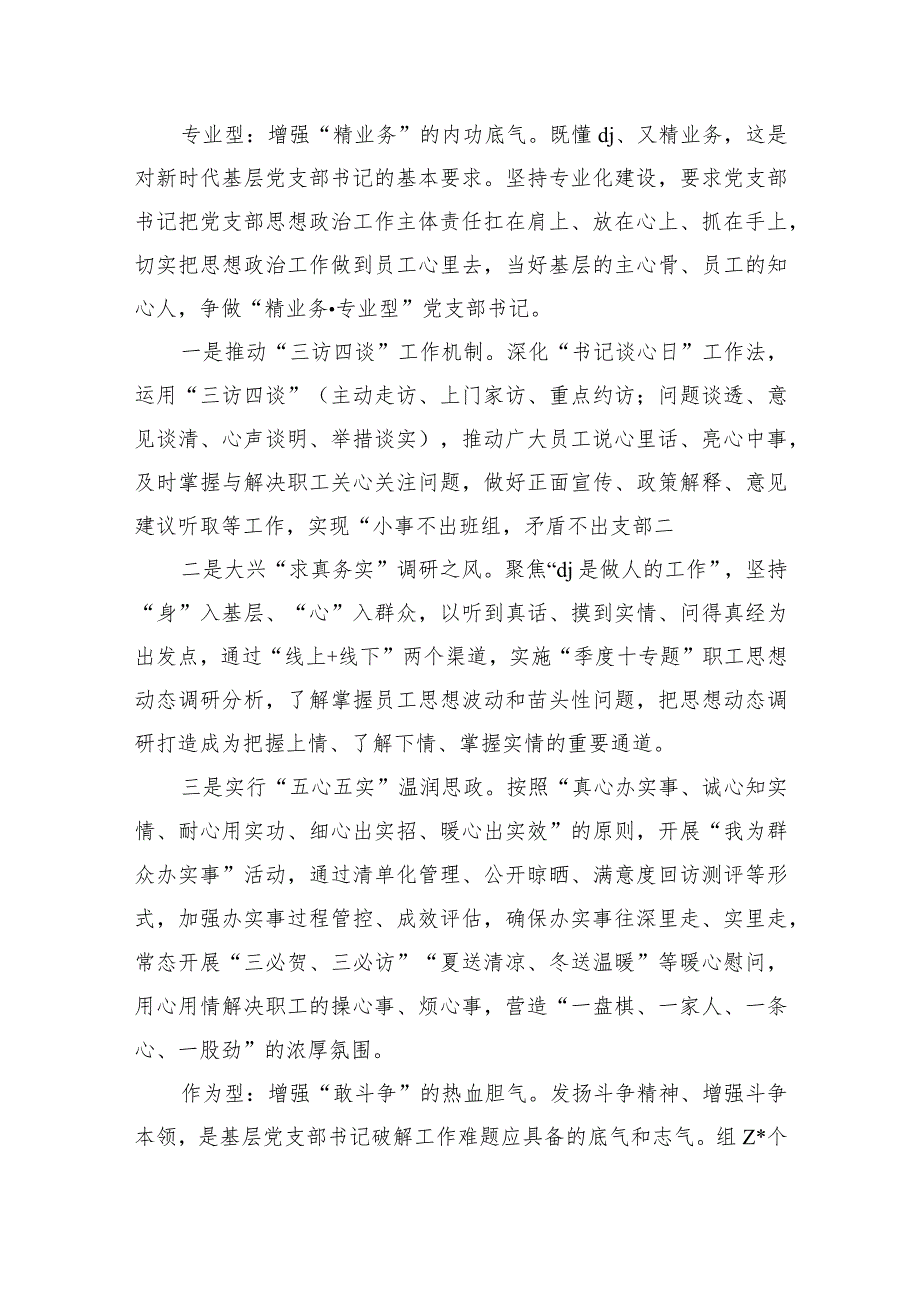 专业型：增强“精业务”的内功底气。既懂 dj、又精业务，这是
对新时代基层党支部书记的基本要求。坚持专业化建设，要求党支部
书记把党支部思想政治工作主体责任扛在肩上、放在心上、抓在手上，
切实把思想政治工作做到员工心里去，当好基层的主心骨、员工的知
心人，争做“精业务•专业型”党支部书记。
一是推动“三访四谈”工作机制。深化“书记谈心日”工作法，
运用“三访四谈”（主动走访、上门家访、重点约访；问题谈透、意
见谈清、心声谈明、举措谈实），推动广大员工说心里话、亮心中事，
及时掌握与解决职工关心关注问题，做好正面宣传、政策解释、意见
建议听取等工作，实现“小事不出班组，矛盾不出支部二
二是大兴“求真务实”调研之风。聚焦“dj 是做人的工作”，坚持
“身”入基层、“心”入群众，以听到真话、摸到实情、问得真经为
出发点，通过“线上+线下”两个渠道，实施“季度十专题”职工思想
动态调研分析，了解掌握员工思想波动和苗头性问题，把思想动态调
研打造成为把握上情、了解下情、掌握实情的重要通道。
三是实行“五心五实”温润思政。按照“真心办实事、诚心知实
情、耐心用实功、细心出实招、暖心出实效”的原则，开展“我为群
众办实事”活动，通过清单化管理、公开晾晒、满意度回访测评等形
式，加强办实事过程管控、成效评估，确保办实事往深里走、实里走，
常态开展“三必贺、三必访”“夏送清凉、冬送温暖”等暖心慰问，
用心用情解决职工的操心事、烦心事，营造“一盘棋、一家人、一条
心、一股劲”的浓厚氛围。
作为型：增强“敢斗争”的热血胆气。发扬斗争精神、增强斗争
本领，是基层党支部书记破解工作难题应具备的底气和志气。组 Z*个